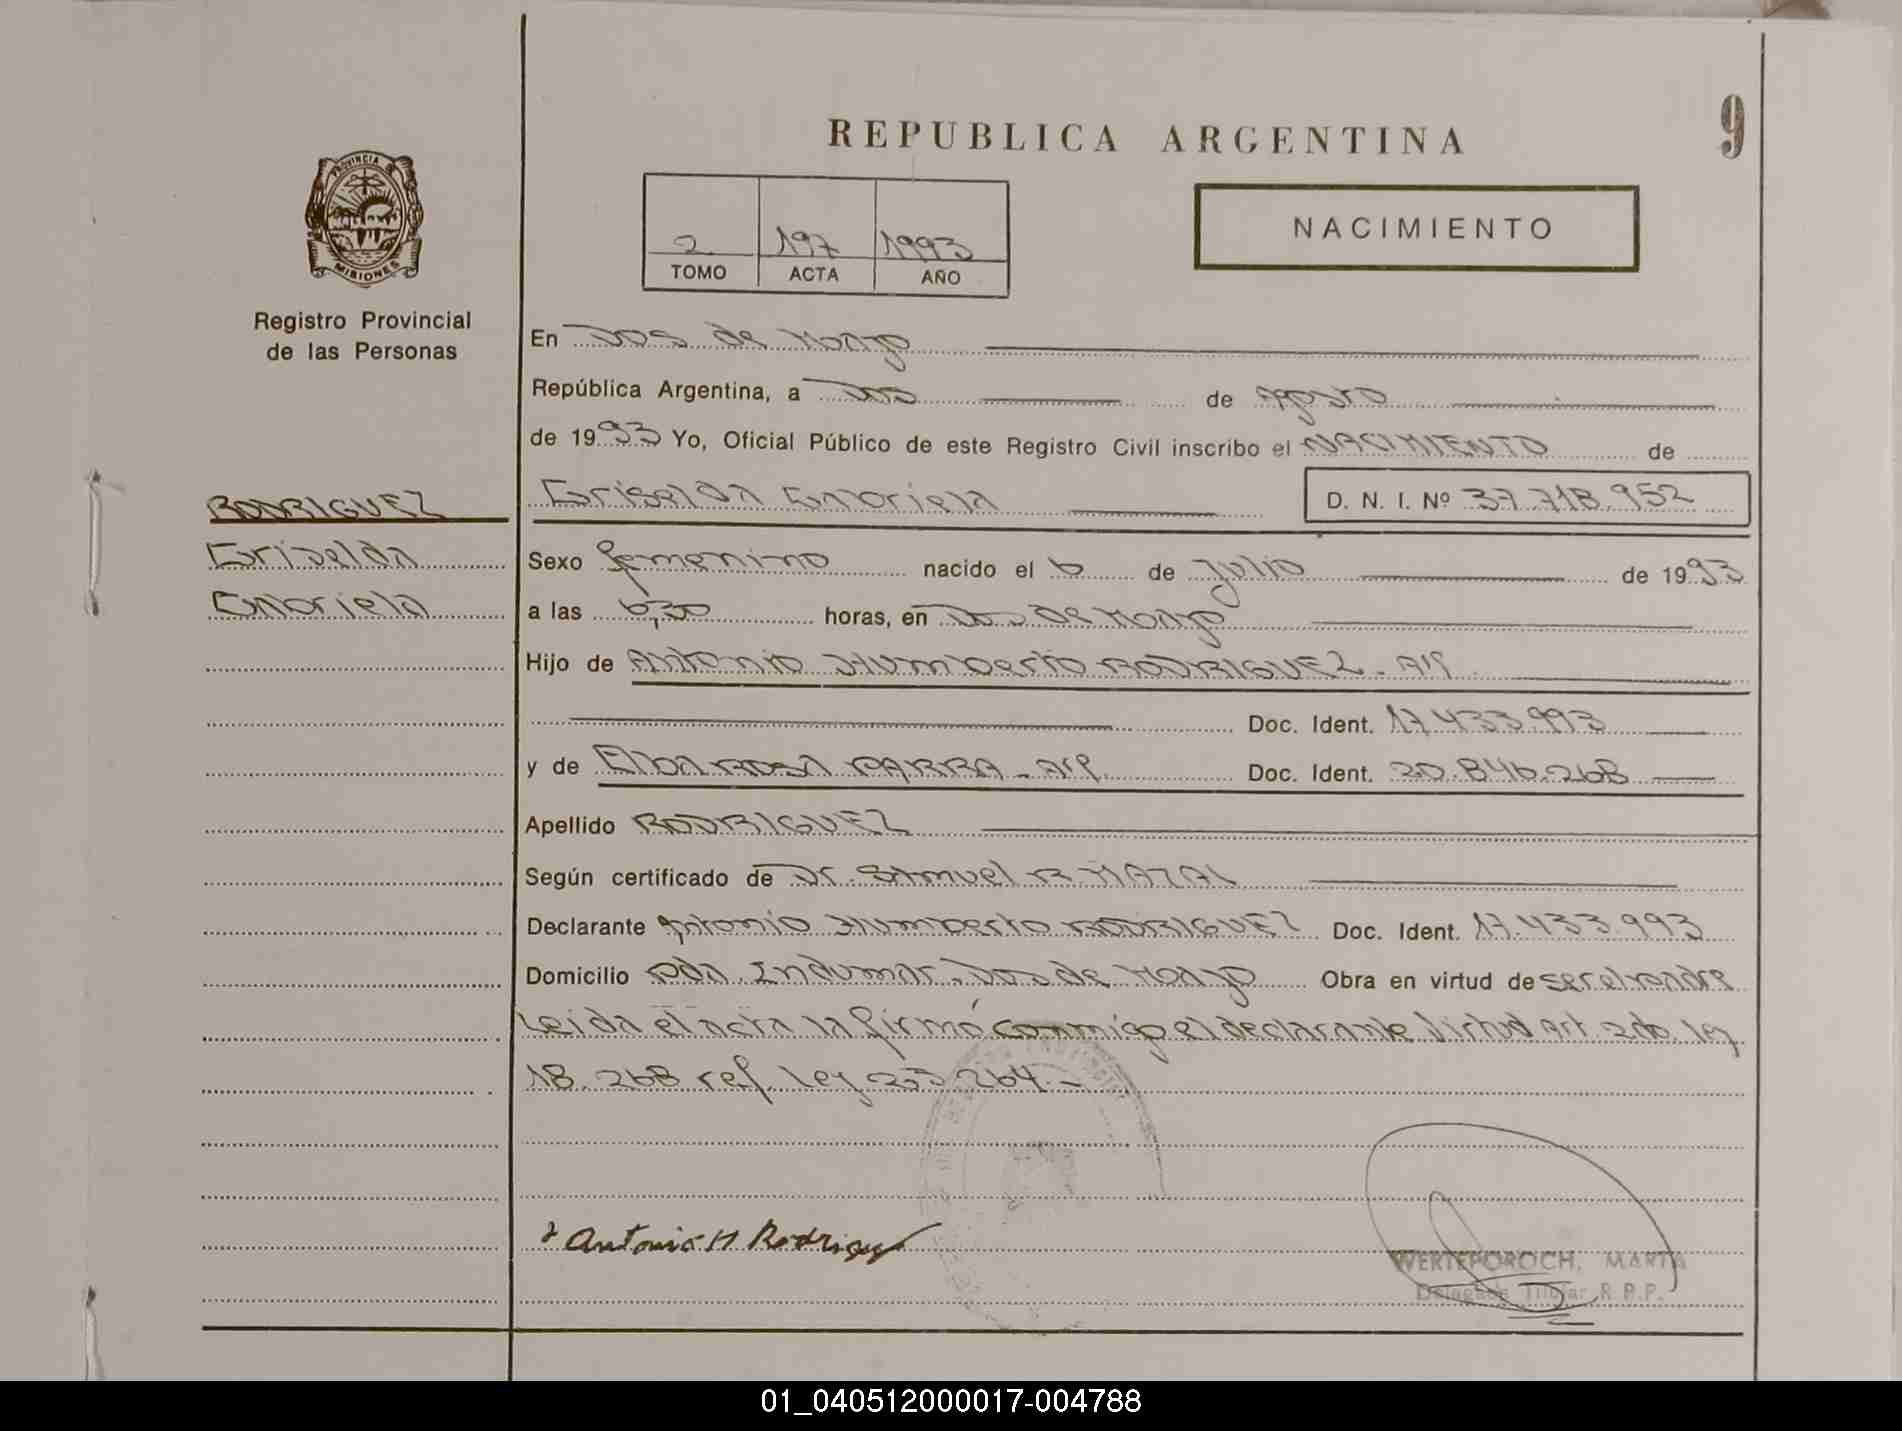 REPUBLICA ARGENTINA
9
2 197 1993
TOMO ACTA AÑO
NACIMIENTO
PROVINCIA DE
MISIONES
Registro Provincial
de las Personas
En Dos de Mayo
República Argentina, a Dos de Agosto
de 1993 Yo, Oficial Público de este Registro Civil inscribo el NACIMIENTO de
RODRIGUEZ
Griselda
Gabriela
Griselda Gabriela D. N. I. Nº 37.718.952
Sexo femenino nacido el 6 de Julio de 1993
a las 6,30 horas, en Dos de Mayo
Hijo de Antonio Humberto RODRIGUEZ - Arg.
Doc. Ident. 17.433.993
y de Elba ROSA PARRA - Arg. Doc. Ident. 20.846.268
Apellido RODRIGUEZ
Según certificado de Dr. Samuel R
Declarante Antonio Humberto RODRIGUEZ Doc. Ident. 17.433.993
Domicilio Pda. Indumar. Dos de Mayo Obra en virtud de ser el Padre
Leida el acta la firmó conmigo el declarante Virtud Art. 2do. ley
18.268 ref. ley 23.264.-
Antonio H Rodriguez
WERTEPOROCH, MARTA
Delegada Titular R.P.P.
01_040512000017-004788